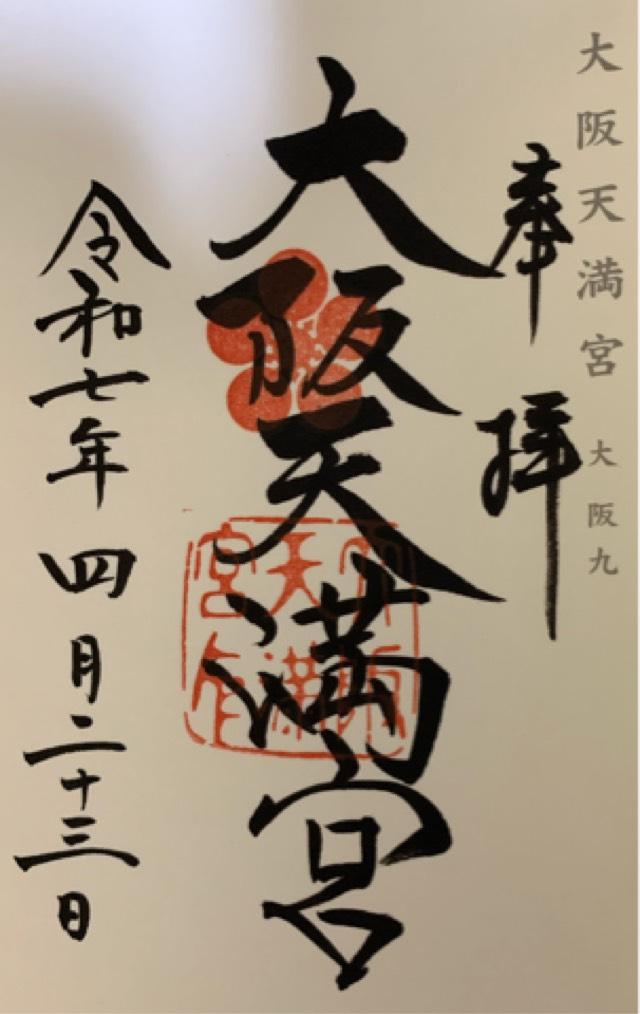 大阪天満宮 大阪九
奉拝
大阪天満宮
令和七年四月二十三日